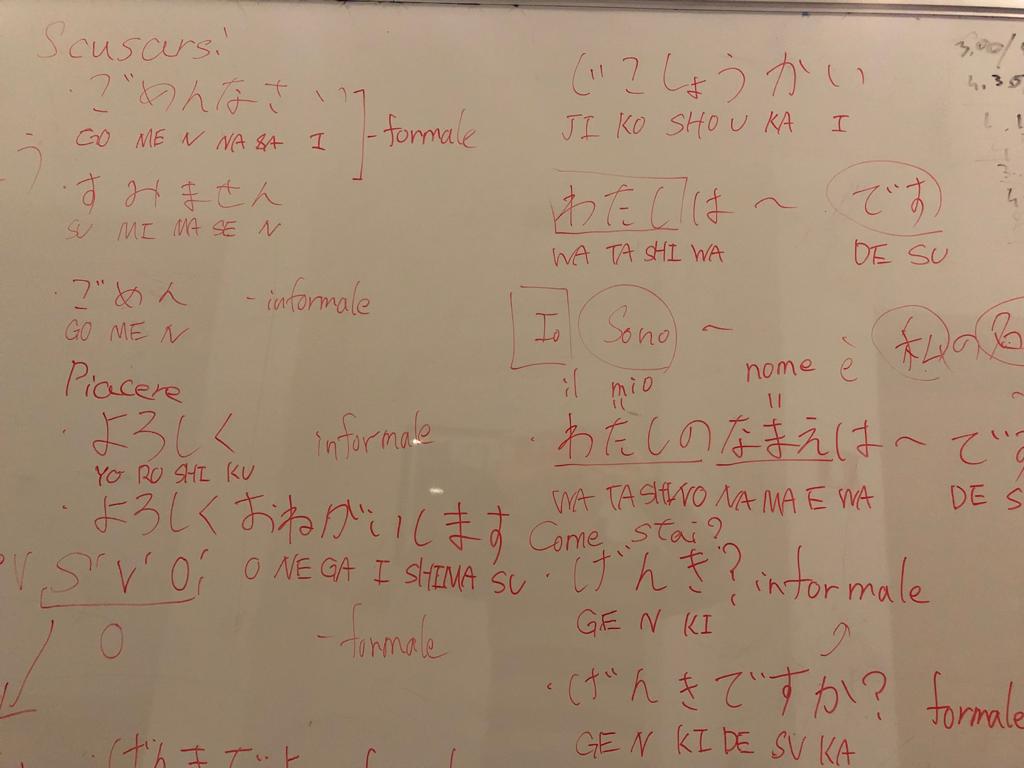 Scusarsi
・ごめんなさい
GO ME N NA SA I
- formale
う
・すみません
SU MI MA SE N
・ごめん - informale
GO ME N
Piacere
・よろしく informale
YO RO SHI KU
・よろしくおねがいします
O NE GA I SHIMA SU
V S" V' O'
O
- formale
じこしょうかい
JI KO SHOU KA I
わたしは〜です
WA TA SHI WA DE SU
Io Sono 〜
私の
il mio nome è
・わたしのなまえは〜です
WA TA SHI NO NA MA E WA DE S
Come stai?
・げんき? informale
GE N KI
・げんきですか? formale
GE N KI DE SU KA
3,00/
4.35